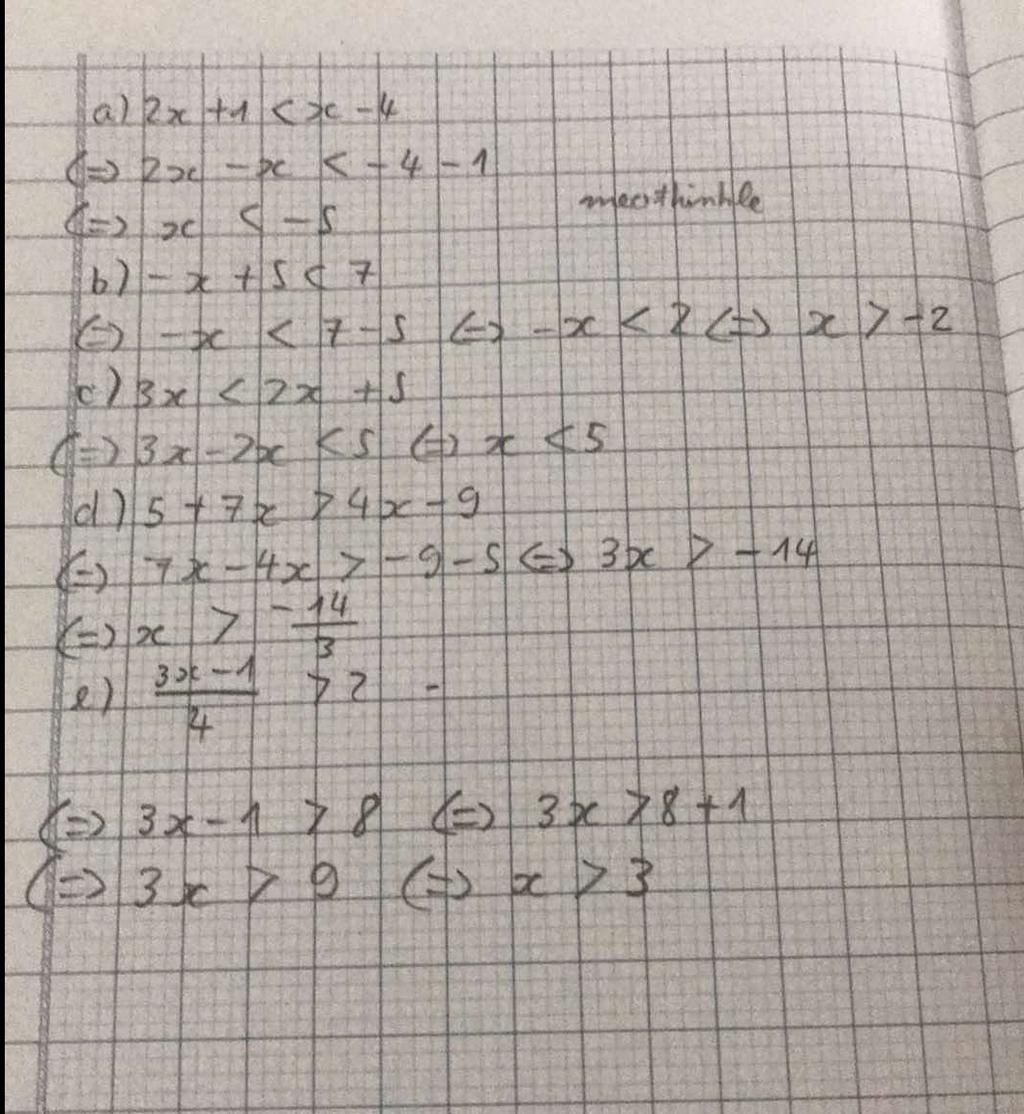 a) 2x + 1 < x - 4
(=) 2x - x < - 4 - 1
(=) x < - 5
b) - x + 5 < 7
(=) - x < 7 - 5 (=) - x < 2 (=) x > - 2
c) 3x < 2x + 5
(=) 3x - 2x < 5 (=) x < 5
d) 5 + 7x > 4x - 9
(=) 7x - 4x > - 9 - 5 (=) 3x > - 14
(=) x > \frac{-14}{3}
e) \frac{3x - 1}{4} > 2 -
(=) 3x - 1 > 8 (=) 3x > 8 + 1
(=) 3x > 9 (=) x > 3